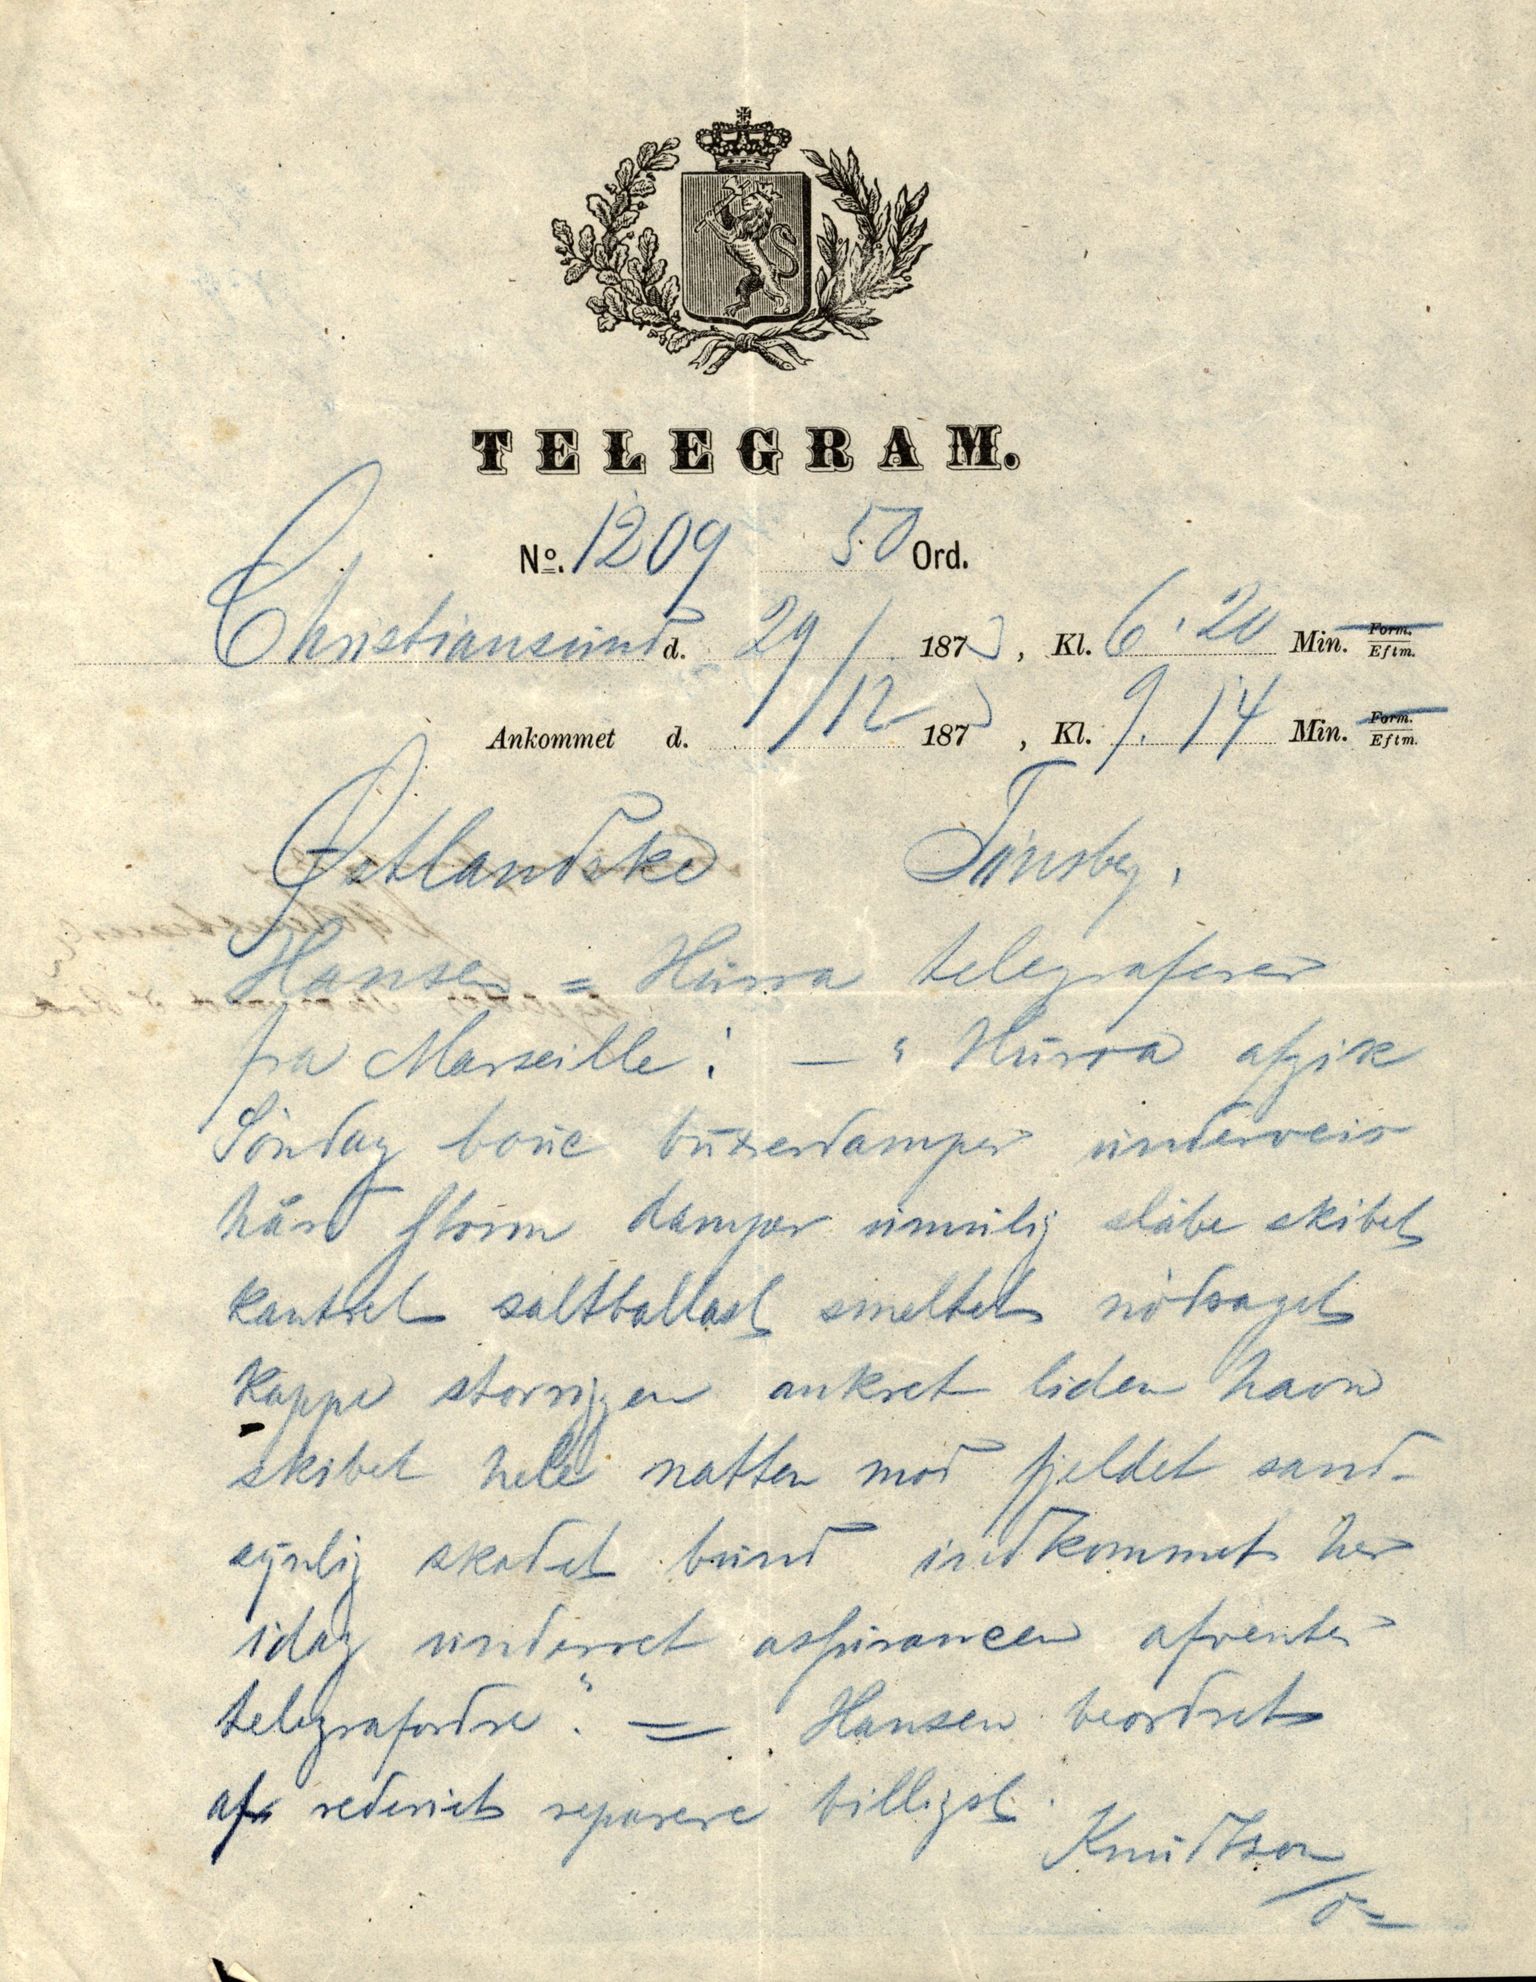 TELEGRAM.
No. 1209 50 Ord.
Christiansund d. 29/12 1873, Kl. 6.20 Min. Form./Eftm.
Ankommet d. 1873, Kl. 9.14 Min. Form./Eftm.
Østlandske Tönsberg,
Hansen = Hurra telegraferer
fra Marseille: — "Hurra afgik
Söndag bouc buxerdamper underveis
hård storm damper umulig slæbe skibet
kantret saltballast smeltet nödsaget
kappe storriggen ankret liden havn
skibet hele natten mod fjeldet sand-
synlig skadet bund indkommet her
idag underret assurancen afventer
telegrafordre". = Hansen beordret
af rederiet reparere billigst.
Knudtzon